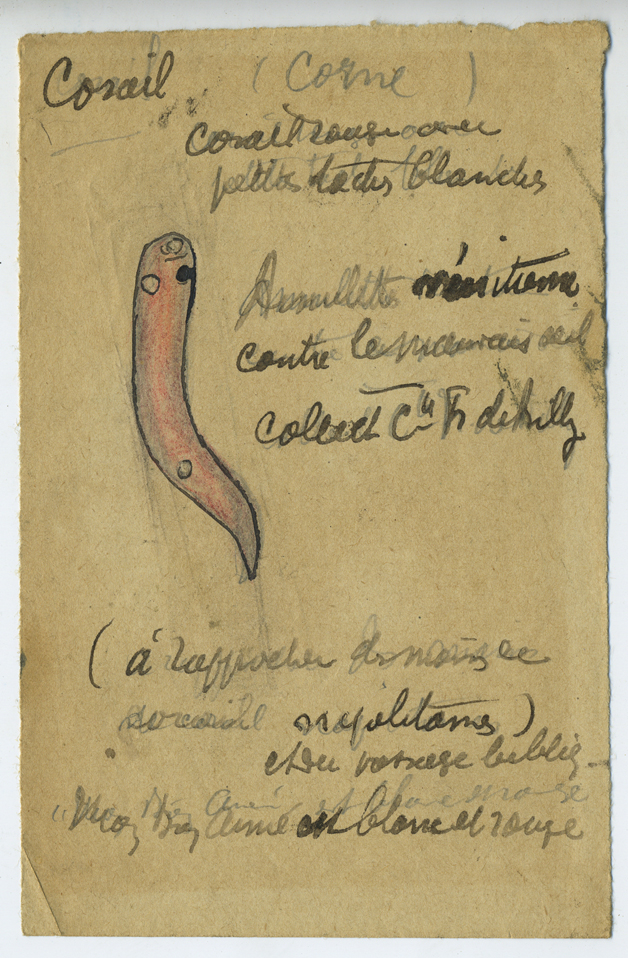 Corail (Corne)
corail rouge avec
petites taches blanches
Amulette vénitienne
contre le mauvais œil
collect Cte Fr de
(à rapprocher
corail napolitaines)
et du passage bibliq-
"Mon Bien aimé est blanc et rouge